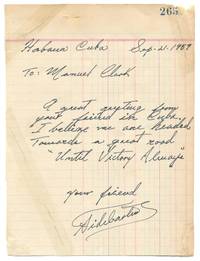 265
Habana Cuba Sep-21-1959
To: Manuel Clark
A great greeting from
your friend in Cuba,
I believe we are headed
Towards a great road
"Until Victory Always"
your friend